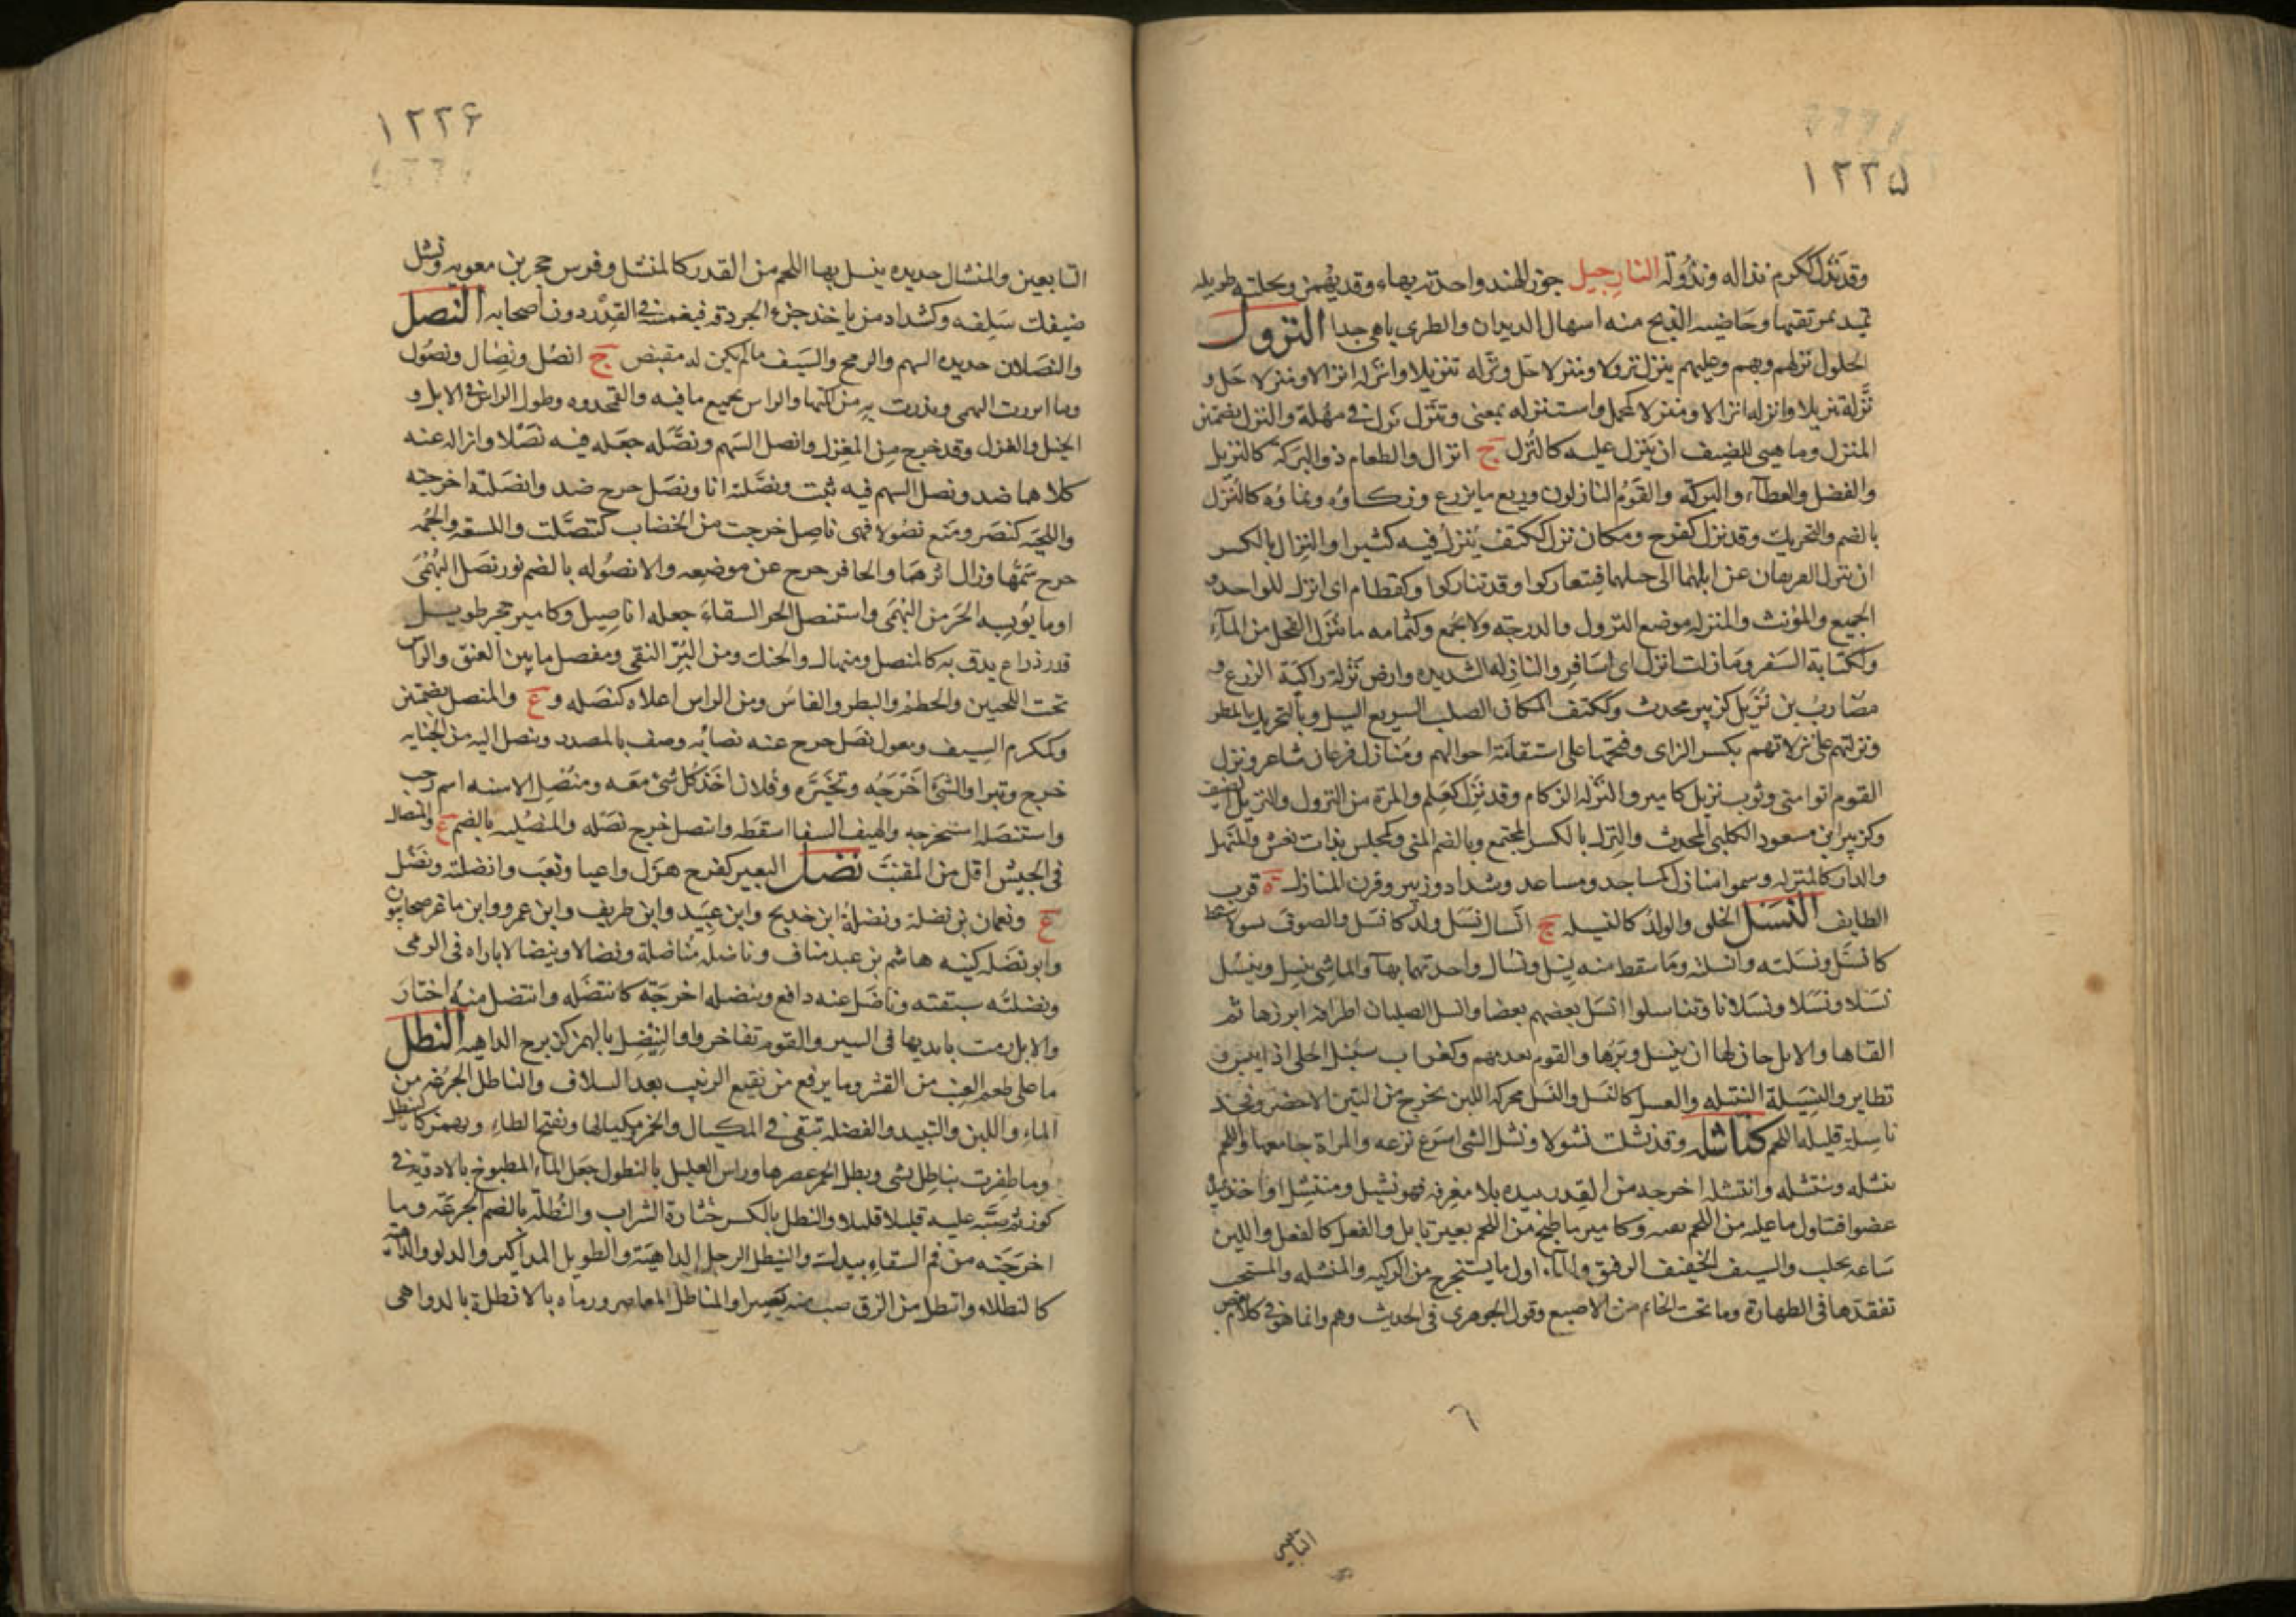 ١٢٢٥
وقد نذل ككرم نذاله ونذوله النارجيل جوز الهند واحدته بهاء وقد يهمز ونخلته طويله
تميد بمرتقيها وخاضيه الذبح منه اسهال الديدان والطرى باهى جدا النزول
الحلول نزلهم وبهم وعليهم ينزل نزولا ومنزلا حل ونزله تنزيلا وانزله انزالا ومنزلا حل و
نزله تنزيلا وانزله انزالا ومنزلا كمجمل واستنزله بمعنى وتنزل نزل فى مهلة والنزل بضمتين
المنزل وما هيى للضيف ان ينزل عليه كالنزل ج انزال والطعام ذو البركة كالنزيل
والفضل والعطآء والبركة والقوم النازلون وريع ما يزرع وزكاؤه ونماؤه كالنزل
بالضم والتحريك وقد نزل كفرح ومكان نزل ككتف ينزل فيه كثيرا والنزال بالكسر
ان ينزل الفريقان عن ابلهما الى خيلهما فيتعاركوا وقد تنازلوا وكقطام اى انزل للواحد و
الجميع والمؤنث والمنزله موضع النزول والدرجة ولا يجمع وكثمامه ما ينزل الفحل من المآء
وككتابة السفر وما زلت انزل اى اسافر والنازله الشديده وارض نزلة زاكية الزرع و
مضارب بن نزيل كزبير محدث وككتف المكان الصلب السريع السيل وبالتحريك المطر
وتركتهم على نزلاتهم بكسر الزاى وفتحها على استقامة احوالهم ومنازل بن فرعان شاعر ونزل
القوم اتوا منى وثوب نزيل كامير والنزله الزكام وقد نزل كعلم والمرة من النزول والنزيل الضيف
وكزبير ابن مسعود الكلبى المحدث والنزل بالكسر المجتمع وبالضم المنى وكمجلس بنات نعش والمنهل
والدار كالمنزله وسموا منازل كمساجد ومساعد وشداد وزبير وقرن المنازل ة قرب
الطايف النسل الخلق والولد كالنسيله ج انسال نسل ولد كانسل والصوف نسولا سقط
كانسل ونسلته وانسلته وما سقط منه نسيل ونسال واحدتهما بهآ والماشى ينسل وينسل
نسلا ونسلا ونسلانا وتناسلوا انسل بعضهم بعضا وانسل الصليان اطرافه ابرزها ثم
القاها والابل حان لها ان ينسل وبرها والقوم تقدمهم وكغراب سنبل الحلى اذا يبس و
تطاير والنسيلة الفتيله والعسل كالنسل والنسل محركه اللبن يخرج من التين الاخضر وفخذ
ناسلة قليله اللحم كناشله وقد نشلت نشولا ونشل الشى اسرع نزعه والمراة جامعها واللحم
ينشله وينتشله وانتشله اخرجه من القدر بيده بلا مغرفه فهو نشيل ومنتشل او اخذ بيده
عضوا فتناول ما عليه من اللحم بفيه وكامير ما طبخ من اللحم بغير تابل والفعل كالفعل واللبن
ساعة يحلب والسيف الخفيف الرقيق والمآء اول ما يستخرج من الركيه والمنشله والمستحب
تفقدها فى الطهارة وما تحت الخاتم من الاصبع وقول الجوهرى فى الحديث وهم وانما هو فى كلام بعض
التابعين
١٢٢۶
التابعين والمنشال حديده ينشل بها اللحم من القدر كالمنشل وفرس حجر بن معويه ونشل
ضيفك سلفه وكشداد من ياخذ جزء الجردقه فيغمسه فى القدر دون اصحابه النصل
والنصلان حديده السهم والرمح والسيف مالم يكن له مقبض ج انصل ونصال ونصول
وما ابرزت البهمى وبذرت به من اكمتها والراس بجميع ما فيه والقمحدوه وطول الراس فى الابل و
الخيل والغزل وقد خرج من المغزل وانصل السهم ونصله جعله فيه نصلا وازاله عنه
كلاهما ضد ونصل السهم فيه ثبت ونصلته انا ونصل خرج ضد وانصلته اخرجته
واللحيه كنصر ومنع نصولا فهى ناصل خرجت من الخضاب كتنصلت واللسعه والحمه
خرج سمها وزال اثرهما والحافر خرج عن موضعه والانصوله بالضم نور نصل البهمى
او ما يوبسه الحر من البهمى واستنصل الحر السقاء جعله اناصيل وكامير حجر طويل
قدر ذراع يدق به كالمنصل ومنهال والحنك ومن البر النقى ومفصل ما بين العنق والراس
تحت اللحيين والخطم والبظر والفاس ومن الراس اعلاه كنصله و ع والمنصل بضمتين
وكمكرم السيف ومعول نصل خرج عنه نصابه وصف بالمصدر وتنصل اليه من الجنايه
خرج وتبرا والشئ اخرجه وتخيره وفلانا اخذ كل شئ معه ومنصل الاسنه اسم رجب
واستنصله استخرجه والهيف السفا اسقطه وانتصل خرج نصله والمنصليه بالضم ع والمنصال
فى الجيش اقل من المقنب نضل البعير كفرح هزل واعيا وتعب وانضلته ونضل
ع ونعمان بن نضلة ونضلة ابن خديج وابن عبيد وابن طريف وابن عمرو وابن ماعز صحابيون
وابو نضله كنيه هاشم بن عبد مناف وناضله مناضلة ونضالا ونيضالا باراه فى الرمى
ونضلته سبقته وناضل عنه دافع وتنضله اخرجه كانتضله وانتضل منه اختار
والابل رمت بايديها فى السير والقوم تفاخروا والنئضل بالهمز كزبرج الداهيه النطل
ما على طعم العنب من القشر وما يرفع من نقيع الزبيب بعد السلاف والناطل الجرعه من
الماء واللبن والنبيذ والفضله تبقى فى المكيال والخمر ومكيالها وبفتح الطاء ويهمز كالنيطل
وما ظفرت بناطل بشى ونطل الخمر عصرها وراس العليل بالنطول جعل الماء المطبوخ بالادويه فى
كوز ثم صبه عليه قليلا قليلا والنطل بالكسر خثارة الشراب والنطلة بالضم الجرعه وما
اخرجته من فم السقاء بيدك والنيطل الرجل الداهية والطويل المذاكير والدلو والداهيه
كالنطلاء وانتطل من الزق صب منه يسيرا والمناطل المعاصر ورماه بالانطلة بالدواهى